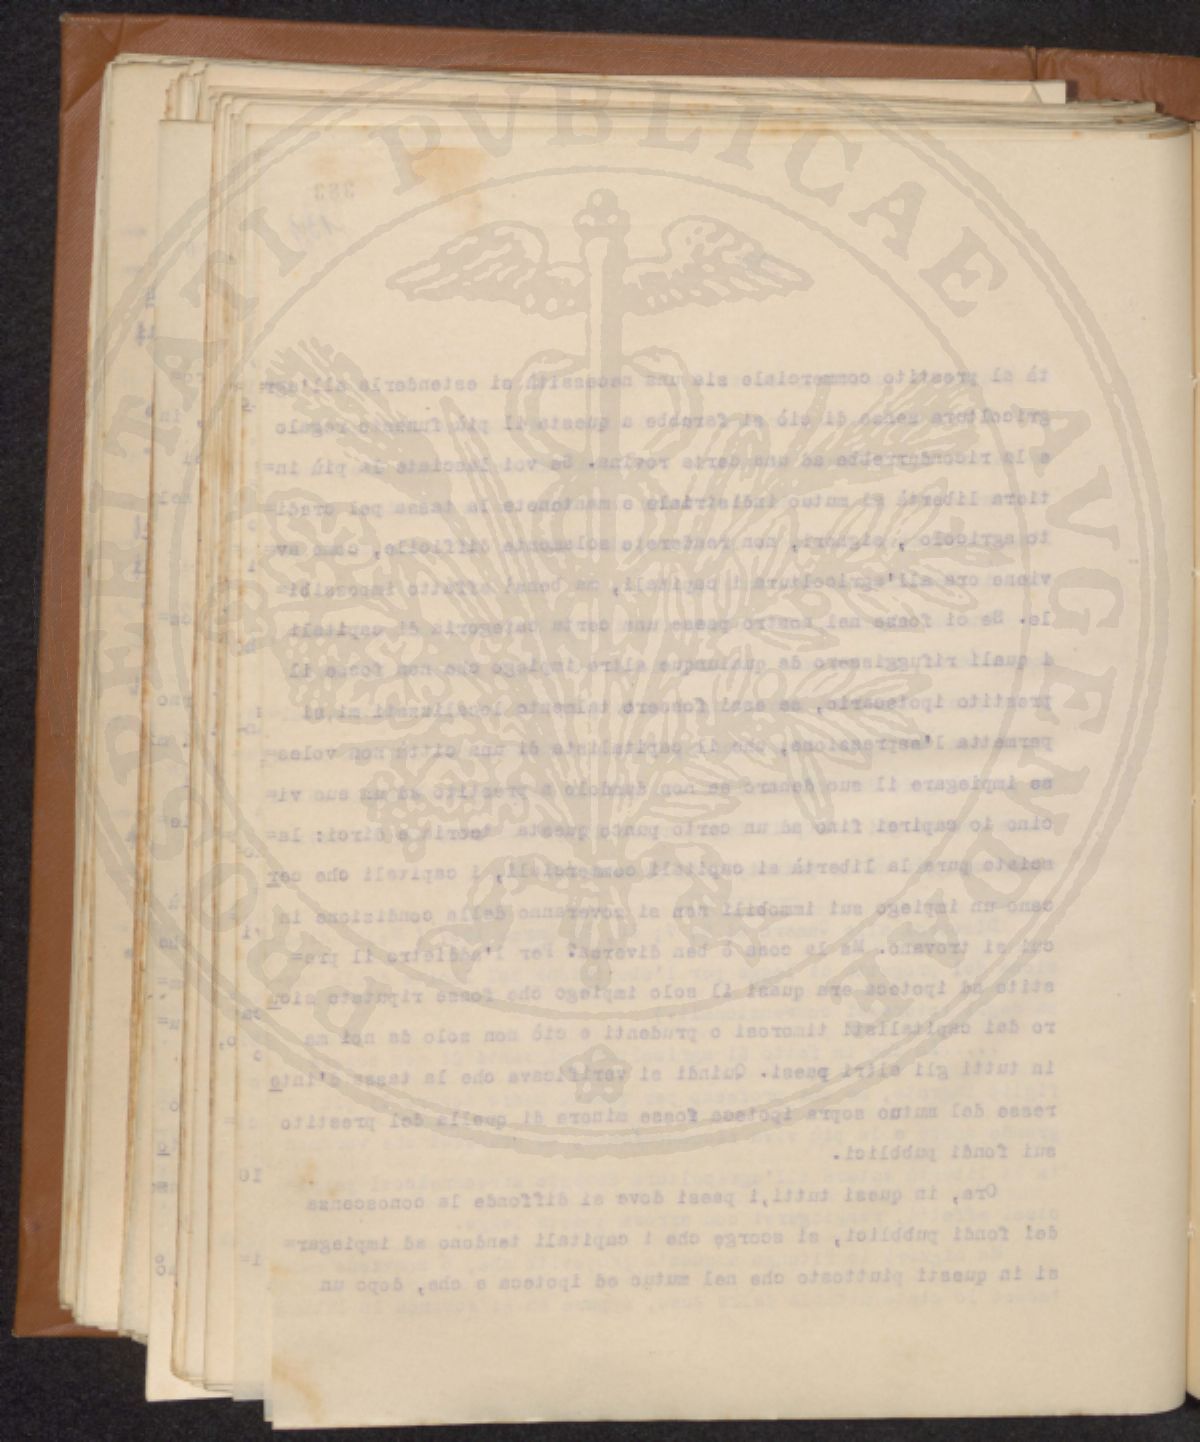 PROSPERITATI PVBLICAE AVGENDAE
383
tà al prestito commerciale sia una necessità si estenderla all'agr=
gricoltura senza di ciò si farebbe a questa il più funesto regalo
e la ricondurrebbe ad una certa rovina. Se voi lasciate la più in=
tiera libertà al mutuo industriale e mantenete la tassa pel credi=
to agricolo, signori, non renderete solamente difficile, come av=
viene ora all'agricoltura i capitali, ma bensì affatto impossibi=
le. Se ci fosse nel nostro paese una certa categoria di capitali
i quali rifuggissero da qualunque altro impiego che non fosse il
prestito ipotecario, se essi fossero talmente localizzati mi si
permetta l'espressione, che il capitalista di una città non voles=
se impiegare il suo denaro se non dandolo a prestito ad un suo vi=
cino io capirei fino ad un certo punto questa teoria e direi: la=
sciate pure la libertà ai capitali commerciali, i capitali che cer
cano un impiego sui immobili non si moveranno della condizione in
cui si trovano. Ma la cosa è ben diversa. Per l'addietro il pre=
stito ad ipoteca era quasi il solo impiego che fosse riputato sicu
ro dai capitalisti timorosi o prudenti e ciò non solo da noi ma
in tutti gli altri paesi. Quindi si verificava che la tassa d'inte
resse del mutuo sopra ipoteca fosse minore di quella del prestito
sui fondi pubblici.
Ora, in quasi tutti,i paesi dove si diffonde la conoscenza
dei fondi pubblici, si scorge che i capitali tendono ad impiegar=
si in questi piuttosto che nel mutuo ad ipoteca e che, dopo un